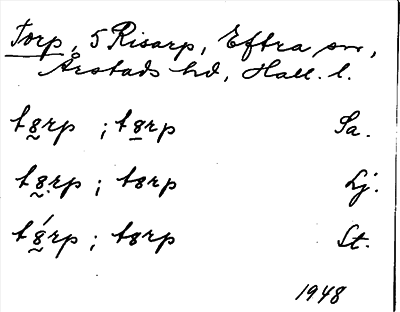 Torp, 5 Risarp, Eftra sn,
Årstads hd, Hall. l.
tȣ̰rp ; tȣ̲rp Sa.
tȣ̰.rp ; tȣrp Lj.
tȣ̰́rp ; tȣrp St.
1948